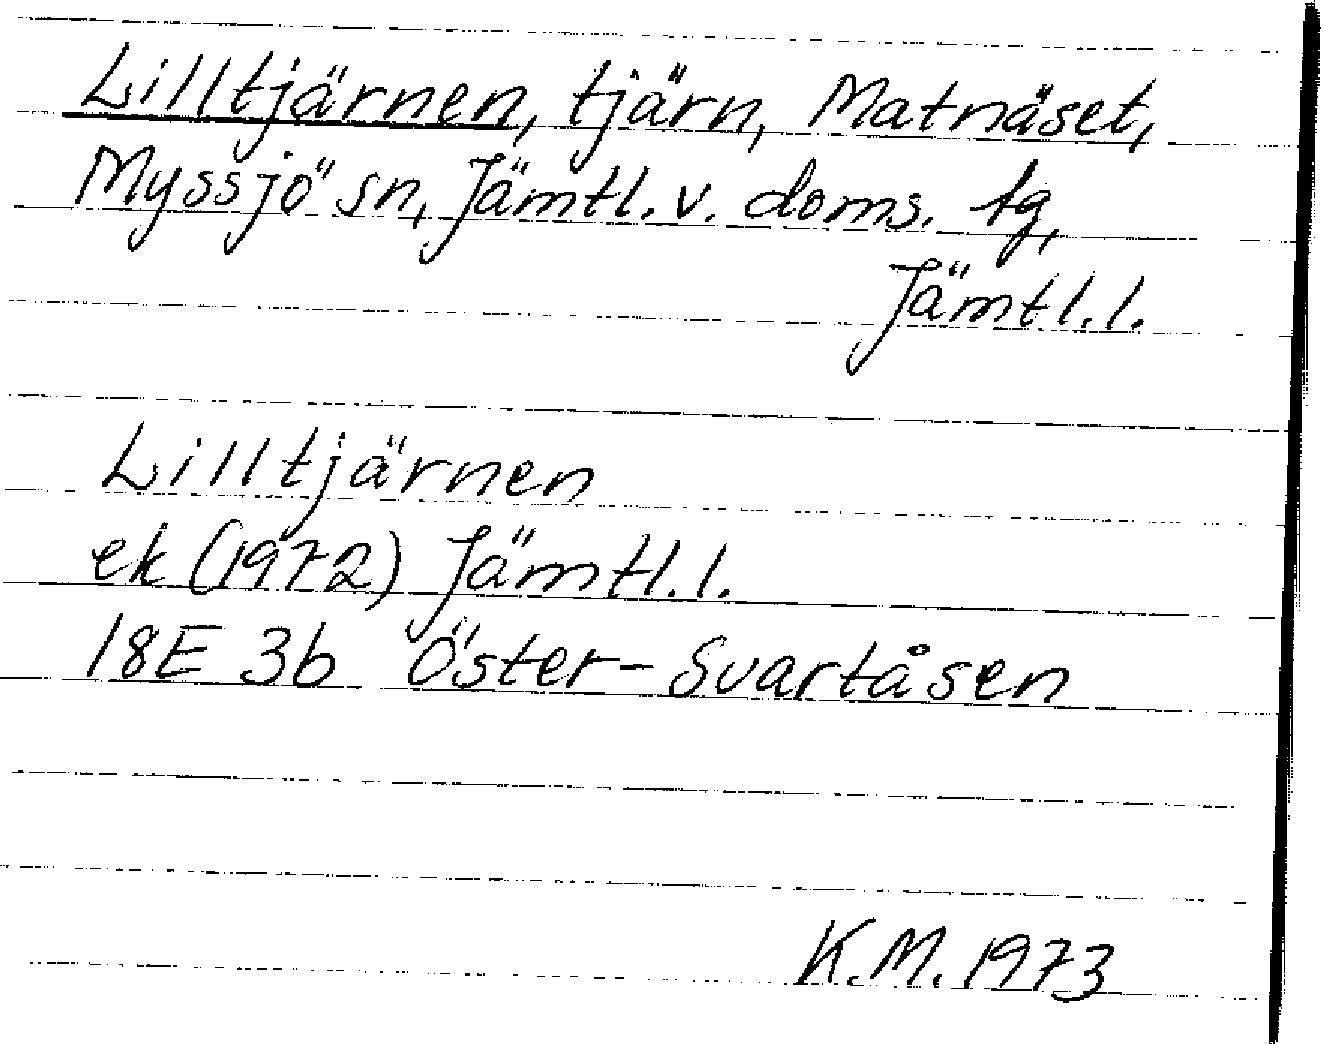 Lilltjärnen, tjärn, Matnäset,
Myssjö sn, Jämtl. v. doms. tg,
Jämtl. l.
Lilltjärnen
ek (1972) Jämtl. l.
18E 3b Öster-Svartåsen
K.M. 1973